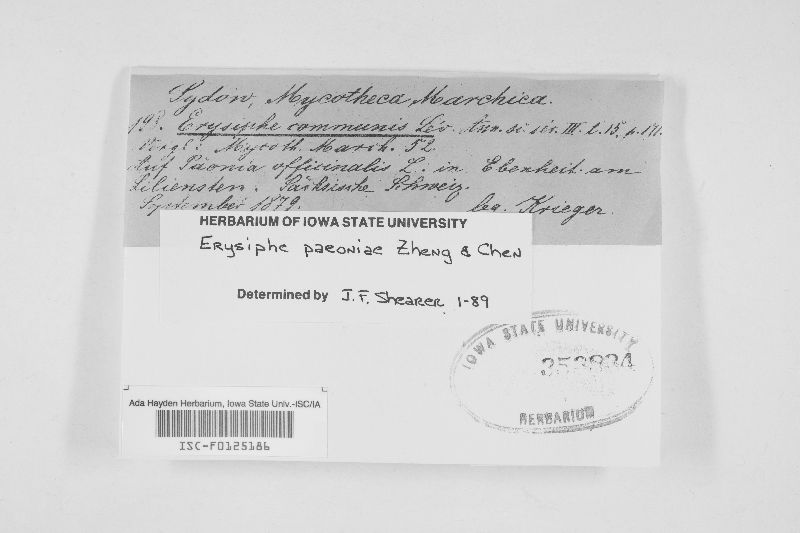 Sydow, Mycotheca Marchica.
193. Erysiphe communis Lév. Ann. sc. sér. III. t. 15. p. 171.
Vergl. Mycoth. March. 52
Auf Päonia officinalis L. in Ebenheit am
Liliensten. Sächsische Schweiz.
September 1879. leg. Krieger.
HERBARIUM OF IOWA STATE UNIVERSITY
Erysiphe paeoniae Zheng & Chen
Determined by J.F. Shearer 1-89
IOWA STATE UNIVERSITY
353934
HERBARIUM
Ada Hayden Herbarium, Iowa State Univ.-ISC/IA
ISC-F0125186